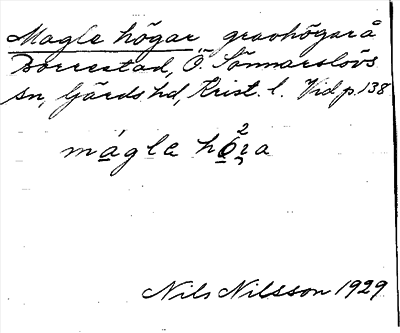 Magle högar gravhögar å
Dorrestad, Ö. Sönnarslövs
sn, Gärds hd, Krist. l. Vid p. 138
mágle hö²ra
Nils Nilsson 1929